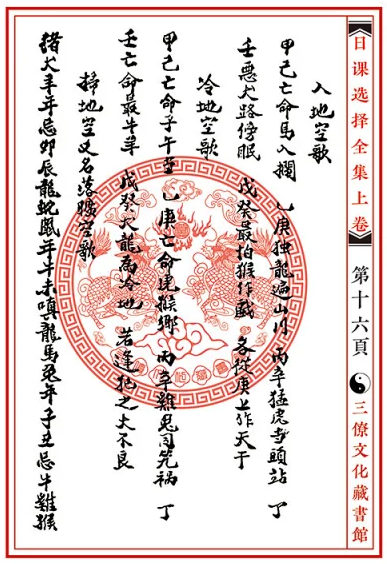 日课选择全集上卷 第十六頁 三僚文化藏書館
入地空歌
甲己亡命馬入欄 乙庚独龍遍山川 丙辛猛虎寺頭站 丁
壬悪犬路傍眠 戊癸最怕猴作戲 各從庚上作天干
冷地空歌
甲己亡命子午 乙庚亡命逢猴鄉 丙辛雞兎同祸 丁
壬亡命最牛羊 戊癸犬龍為冷地 若逢犯之大不良
掃地空又名落曠空歌
猪犬羊年忌卯辰龍蛇年午未嗔龍馬兔年子丑忌牛雞猴